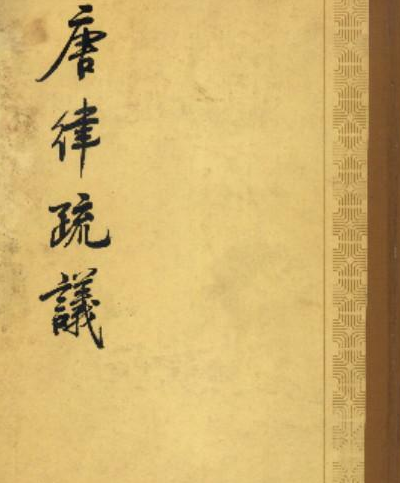 唐律疏議